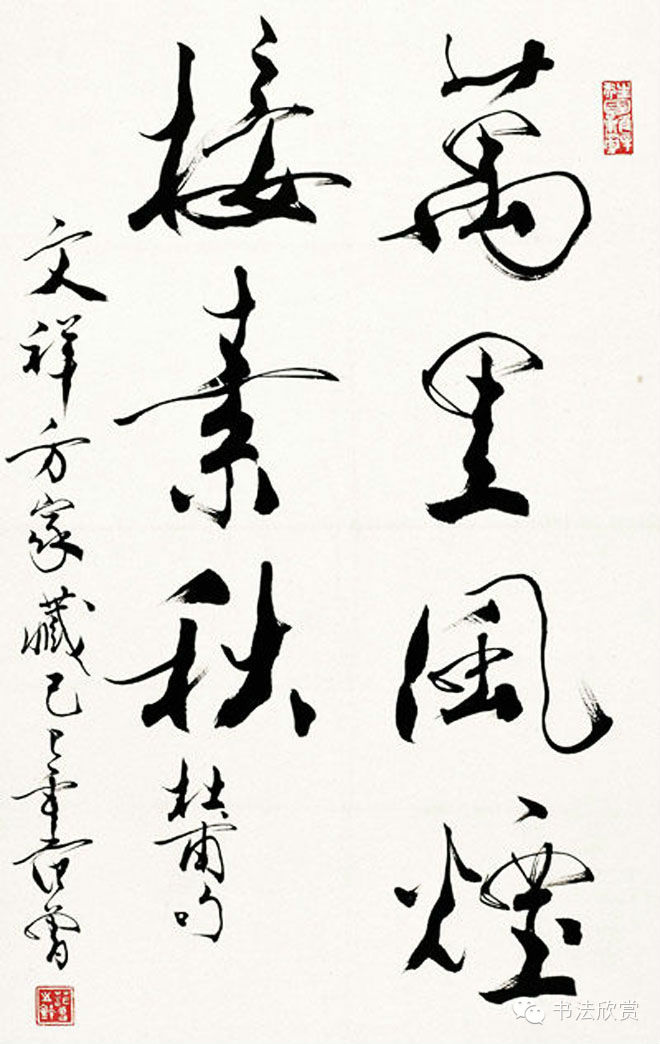 萬里風煙
接素秋 杜甫句
文祥方家藏己丑年范曾
书法欣赏